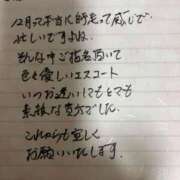 12月って本当に師走って感じで
忙しいですよね。
そんな中ご指名頂いて
色々優しいエスコート
いつお逢いしてもとても
素敵な貴方でした。
これからも宜しく
お願いいたします。